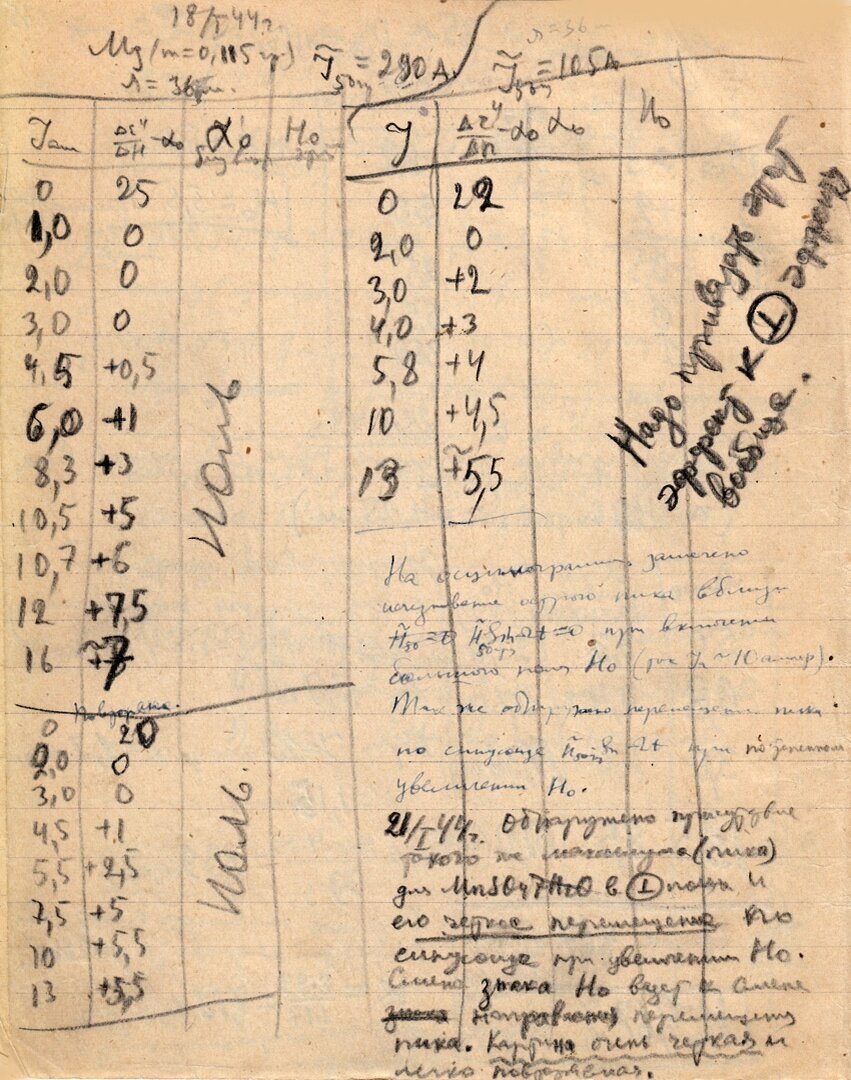 18/I 44г.
Mg (m=0,115 гр.)
J̃ = 290 А.
J̃ = 105А
r = 36
r = 36
J α₀ H₀
J -α₀ α₀ H₀
0 25
1,0 0
2,0 0
3,0 0
4,5 +0,5
6,0 +1
8,3 +3
10,5 +5
10,7 +6
12 +7,5
16 +7
Ноль
Повторение.
0 20
2,0 0
3,0 0
4,5 +1
5,5 +2,5
7,5 +5
10 +5,5
13 +5,5
Ноль.
0 22
2,0 0
3,0 +2
4,0 +3
5,8 +4
10 +4,5
13 +5,5
Надо привязать этот
эффект к ⊥ эффекту
вообще.
На осциллограммах замечено
исчезновение острого пика вблизи
H̃ Sin Ωt = 0 при включении
большого поля H₀ (ток ~ 10 ампер).
Так же обнаружено перемещение пика
по синусоиде H̃ Sin Ωt при постепенном
увеличении H₀.
21/I 44г. Обнаружено присутствие
такого же максимума (пика)
для MnSO₄7H₂O в ⊥ полях и
его четкое перемещение по
синусоиде при увеличении H₀.
Смена знака H₀ ведет к смене
направления перемещения
пика. Картина очень четкая и
легко повторяемая.